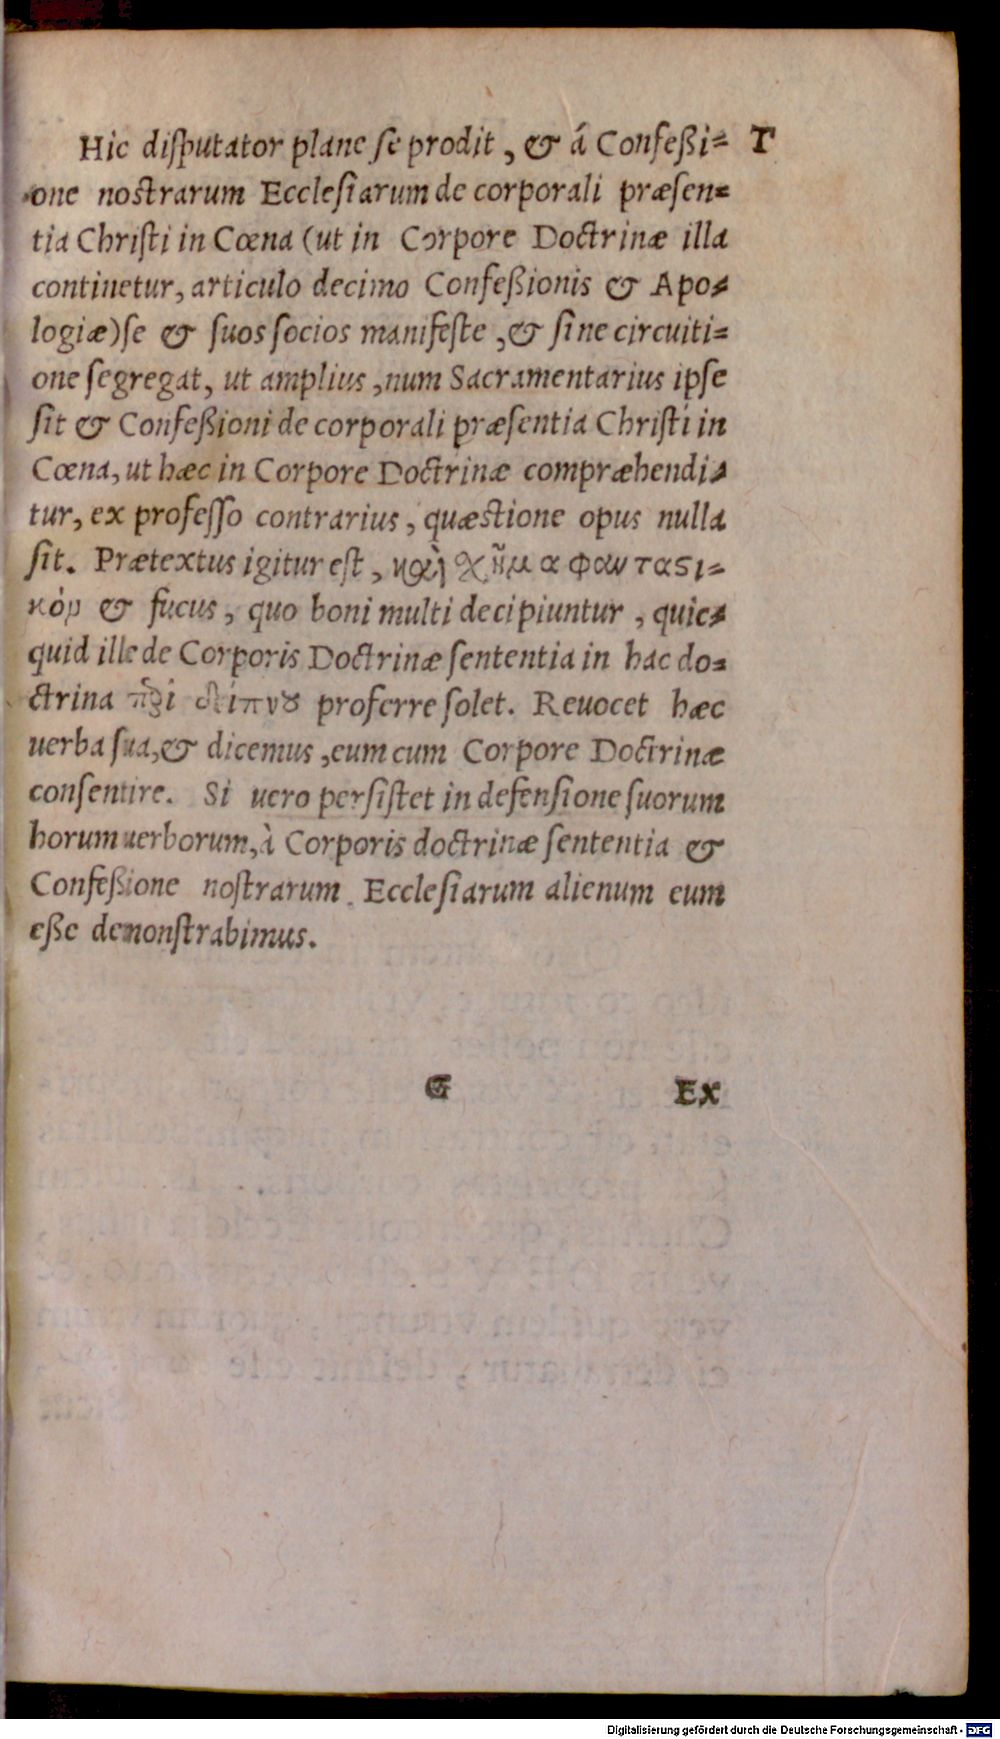 Hic disputator plane se prodit, & á Confeßi= T
one nostrarum Ecclesiarum de corporali præsen=
tia Christi in Cœna (ut in Corpore Doctrinæ illa
continetur, articulo decimo Confeßionis & Apo=
logiæ) se & suos socios manifeste, & sine circuiti=
one segregat, ut amplius, num Sacramentarius ipse
sit & Confeßioni de corporali præsentia Christi in
Cœna, ut hæc in Corpore Doctrinæ compræhendi=
tur, ex professo contrarius, quæstione opus nulla
sit. Prætextus igitur est, καὶ χῆμα φανταϛι=
κὸν & fucus, quo boni multi decipiuntur, quic=
quid ille de Corporis Doctrinæ sententia in hac do=
ctrina πεὶ δείπνȣ proferre solet. Reuocet hæc
uerba sua, & dicemus, eum cum Corpore Doctrinæ
consentire. Si uero persistet in defensione suorum
horum uerborum, à Corporis doctrinæ sententia &
Confeßione nostrarum Ecclesiarum alienum eum
eße demonstrabimus.
G EX
Digitalisierung gefördert durch die Deutsche Forschungsgemeinschaft - DFG